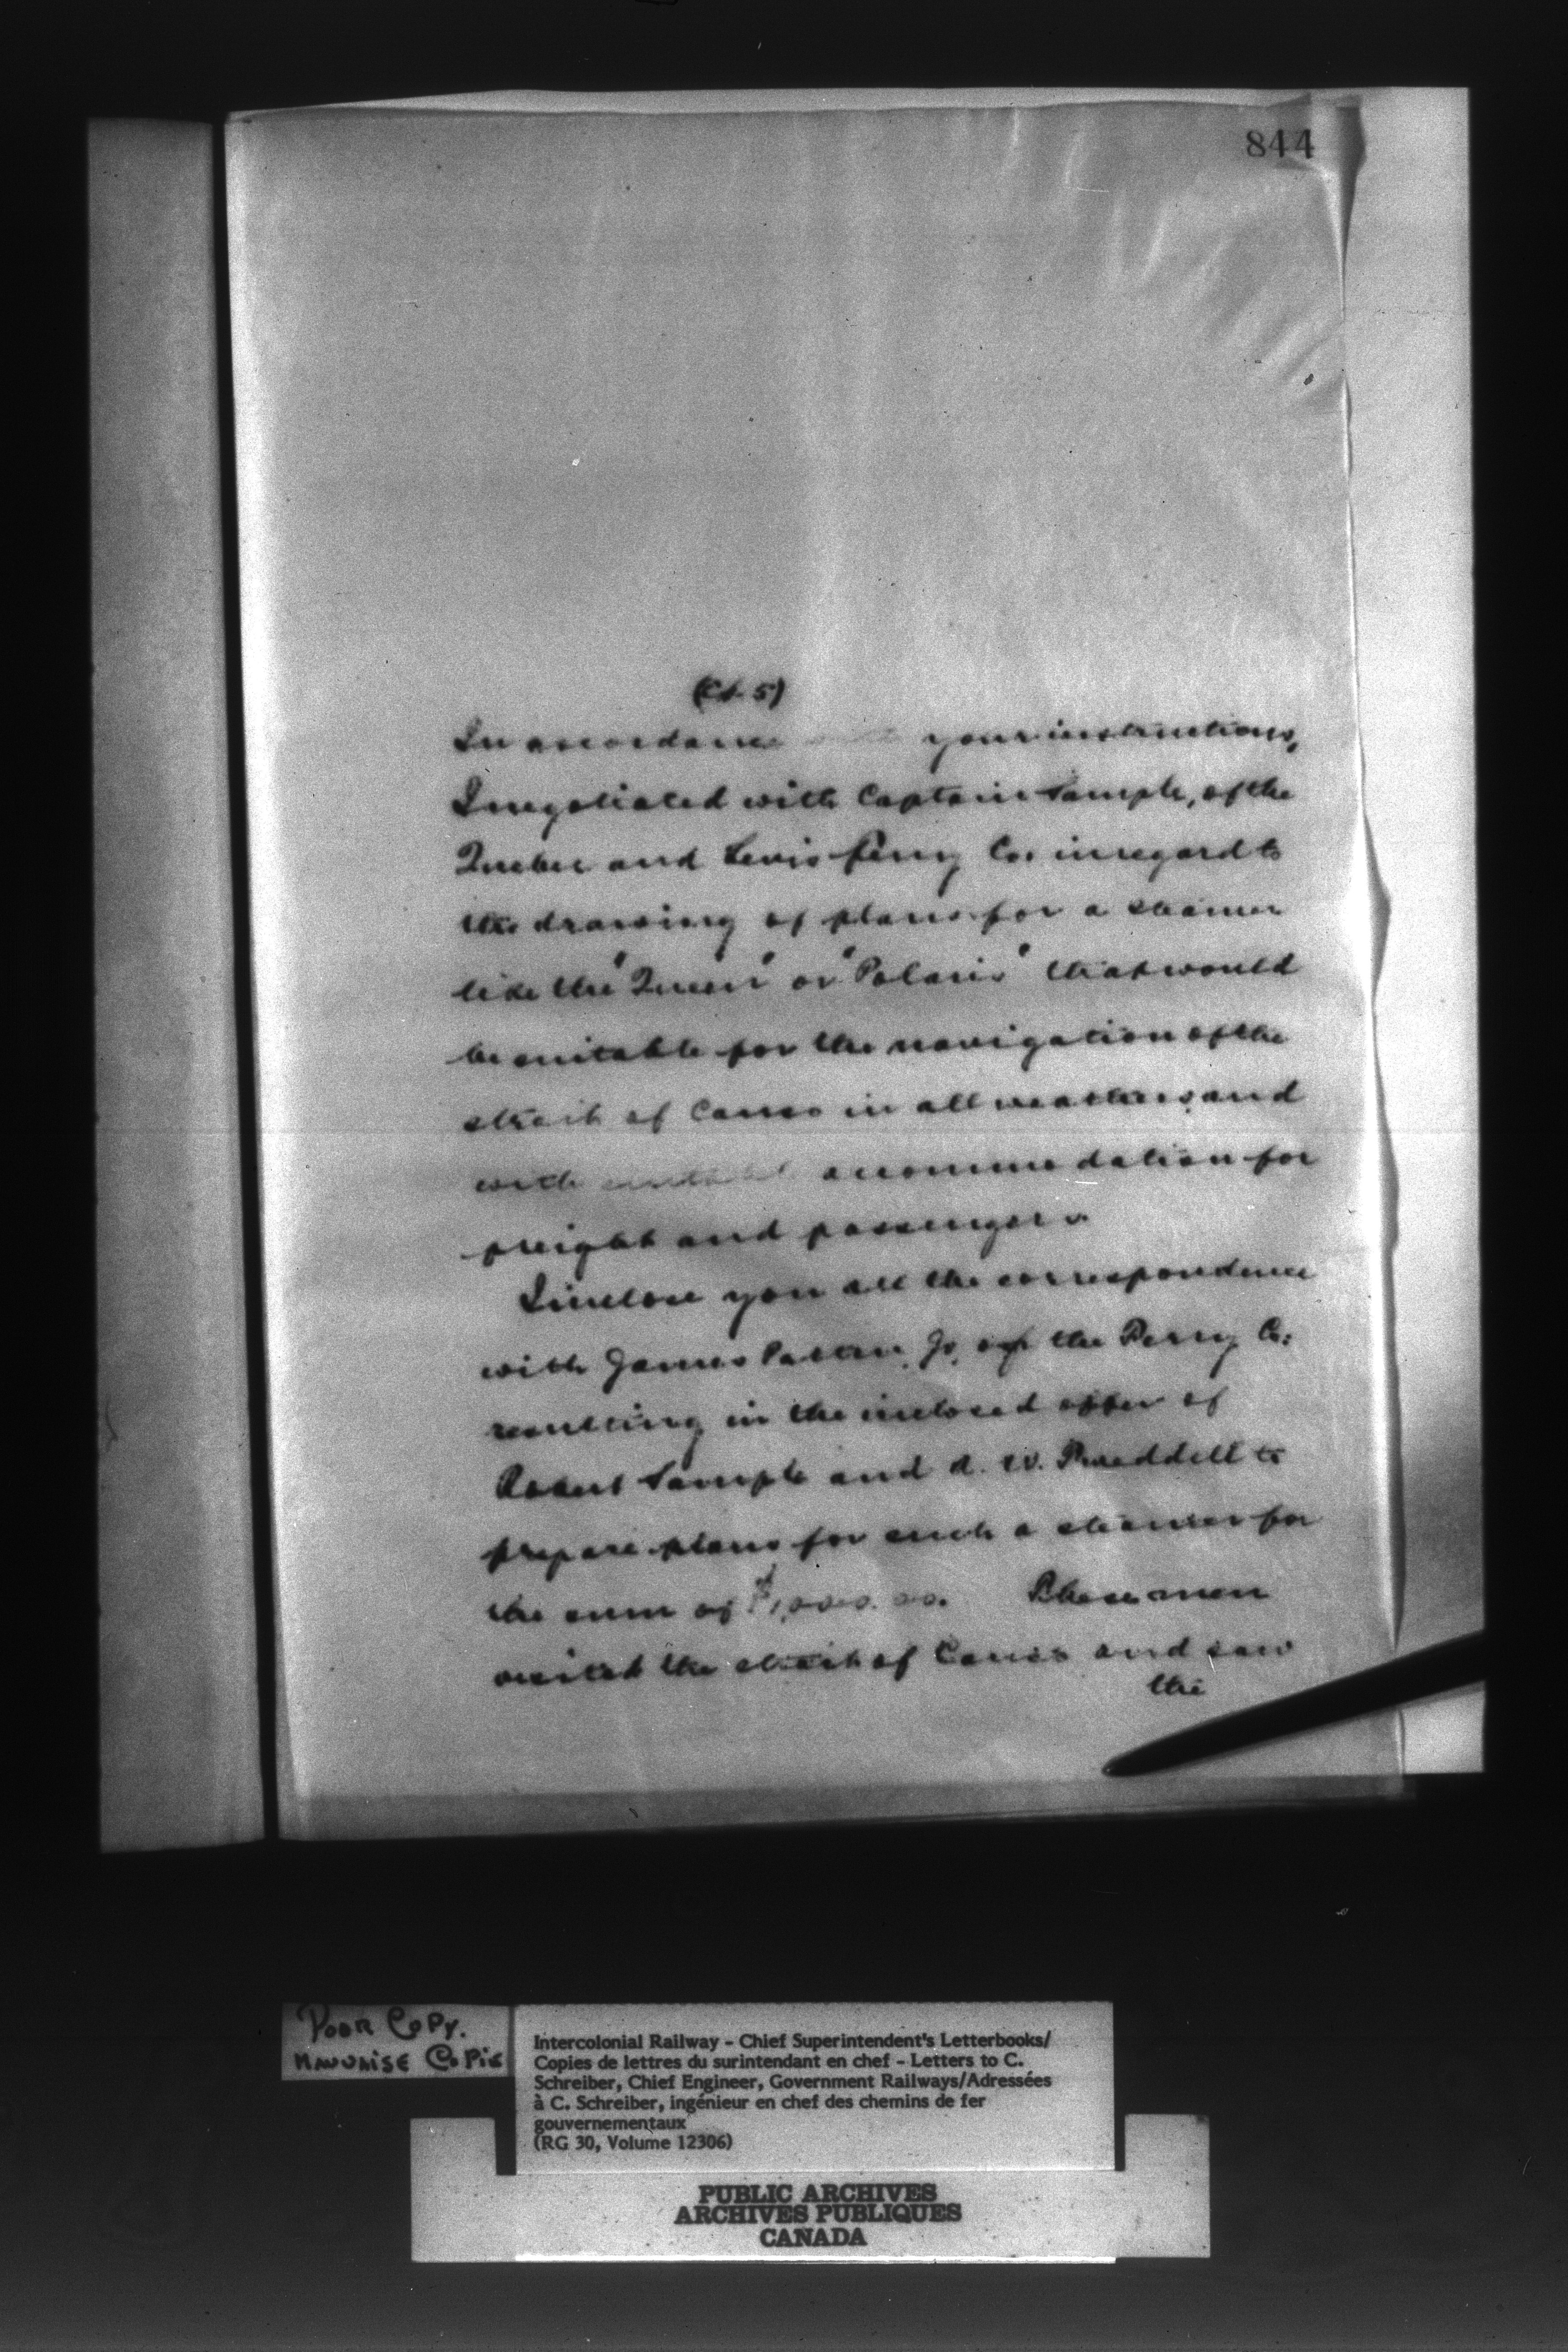 844
In accordance your instructions,
I negotiated with Captain Sample, of the
Quebec and Levis Ferry Co. in regard to
the drawing of plans for a steamer
like the "Queen" or "Polaris" that would
be suitable for the navigation of the
strait of Canso in all weathers, and
with accommodation for
freight and passengers.
I inclose you all the correspondence
with James Patton, Jr, of the Ferry Co:
resulting in the inclosed offer of
Robert Sample and A. W. to
prepare plans for such a steamer for
the sum of $1,000.00. These men
visited the strait of Canso and saw
the
POOR COPY.
MAUVAISE COPIE
Intercolonial Railway - Chief Superintendent's Letterbooks/
Copies de lettres du surintendant en chef - Letters to C.
Schreiber, Chief Engineer, Government Railways/Adressées
à C. Schreiber, ingénieur en chef des chemins de fer
gouvernementaux
(RG 30, Volume 12306)
PUBLIC ARCHIVES
ARCHIVES PUBLIQUES
CANADA